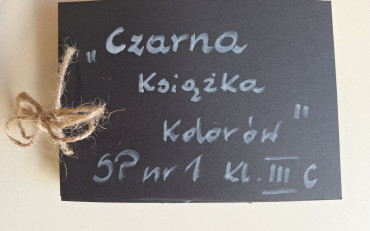 „Czarna
Książka
Kolorów"
SP nr 1 kl. III c